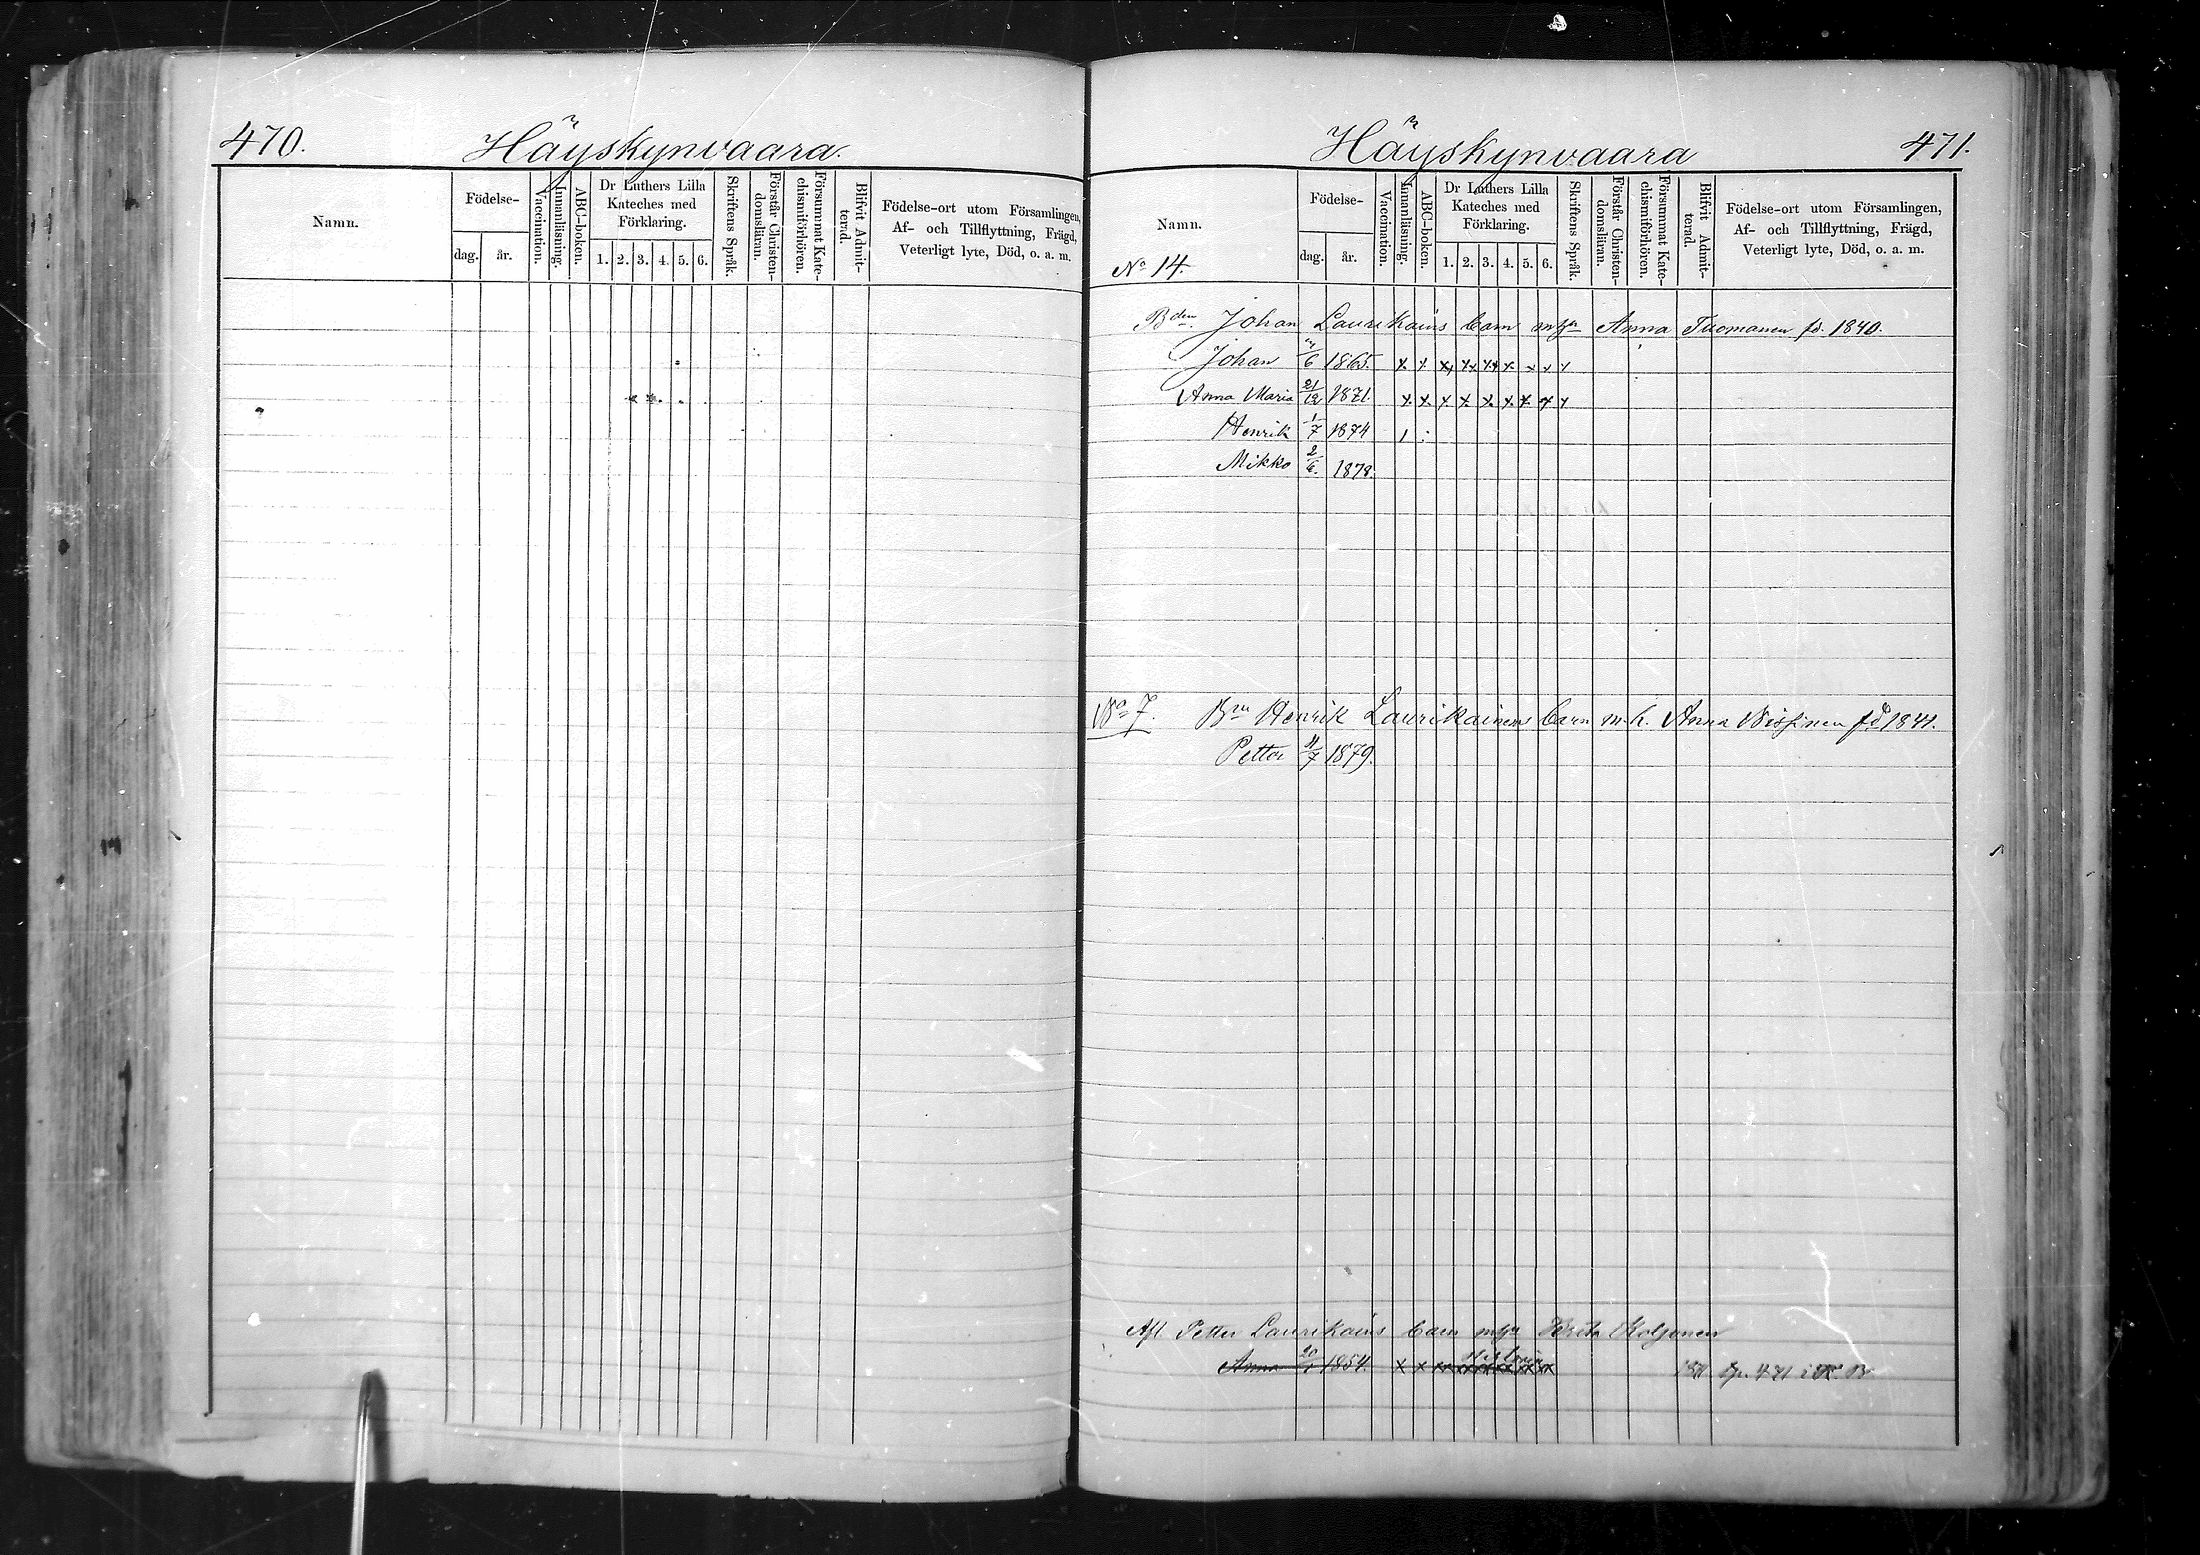 470.
Häyskynvaara.
Namn.
Födelse-
dag.
år.
Vaccination.
Innanläsning.
ABC-boken.
Dr Luthers Lilla
Kateches med
Förklaring.
1. 2. 3. 4. 5. 6.
Skriftens Språk.
Förstår Christen-
domsläran.
Försummat Kate-
chismiförhören.
Blifvit Admit-
terad.
Födelse-ort utom Församlingen,
Af- och Tillflyttning, Frägd,
Veterligt lyte, Död, o. a. m.
Häyskynvaara
471.
Namn.
No 14.
Födelse-
dag.
år.
Vaccination.
Innanläsning.
ABC-boken.
Dr Luthers Lilla
Kateches med
Förklaring.
1. 2. 3. 4. 5. 6.
Skriftens Språk.
Förstår Christen-
domsläran.
Försummat Kate-
chismiförhören.
Blifvit Admit-
terad.
Födelse-ort utom Församlingen,
Af- och Tillflyttning, Frägd,
Veterligt lyte, Död, o. a. m.
Bden Johan Laurikains barn m Anna Tuomanen fd. 1840.
Johan /6 1865. x x x x x x x x x
Anna Maria 21/12 1871. x x x x x x x x x
Henrik 1/7 1874
Mikko 2/6. 1878.
No 7. Henrik Laurikainens barn m. h. Anna fd 1841.
Petter 11/7 1879.
Afl Petter Laurikains barn m Koljonen
Anna 20/ 1854. x x
471